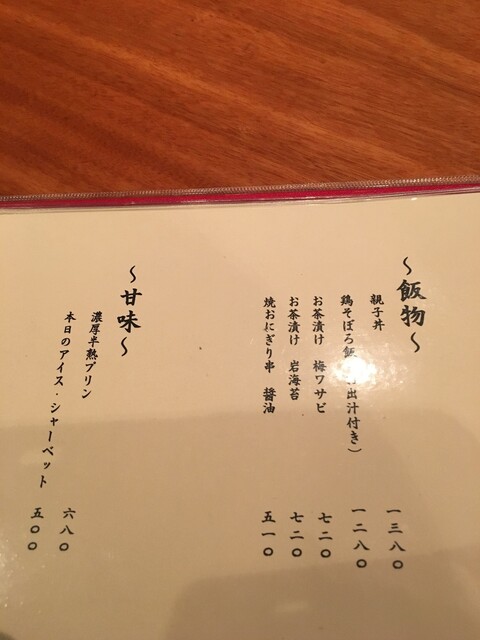 〜飯物〜
親子丼 一三八〇
鶏そぼろ飯 出汁付き） 一二八〇
お茶漬け 梅ワサビ 七二〇
お茶漬け 岩海苔 七二〇
焼おにぎり串 醤油 五一〇
〜甘味〜
濃厚半熟プリン 六八〇
本日のアイス・シャーベット 五〇〇